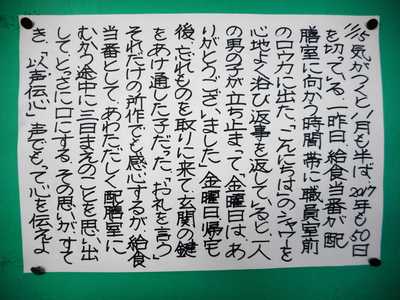 11/15 気がつくと11月も半ば、2017年も50日
を切っている。一昨日、給食当番が配
膳室に向かう時間帯に職員室前
のロウカに出た。「こんにちは」のシャワーを
心地よく浴び返事を返していると、一人
の男の子が立ち止まって、「金曜日は、あ
りがとうございました」金曜日帰宅
後、忘れものを取りに来て玄関の鍵
をあけ通した子だった。お礼を言う
それだけの所作でも感心するが、給食
当番として、あわただしく配膳室に
むかう途中に三日まえのことを思い出
して、とっさに口にする。その思いが、すて
き。「以声伝心」声でもって心を伝えよ